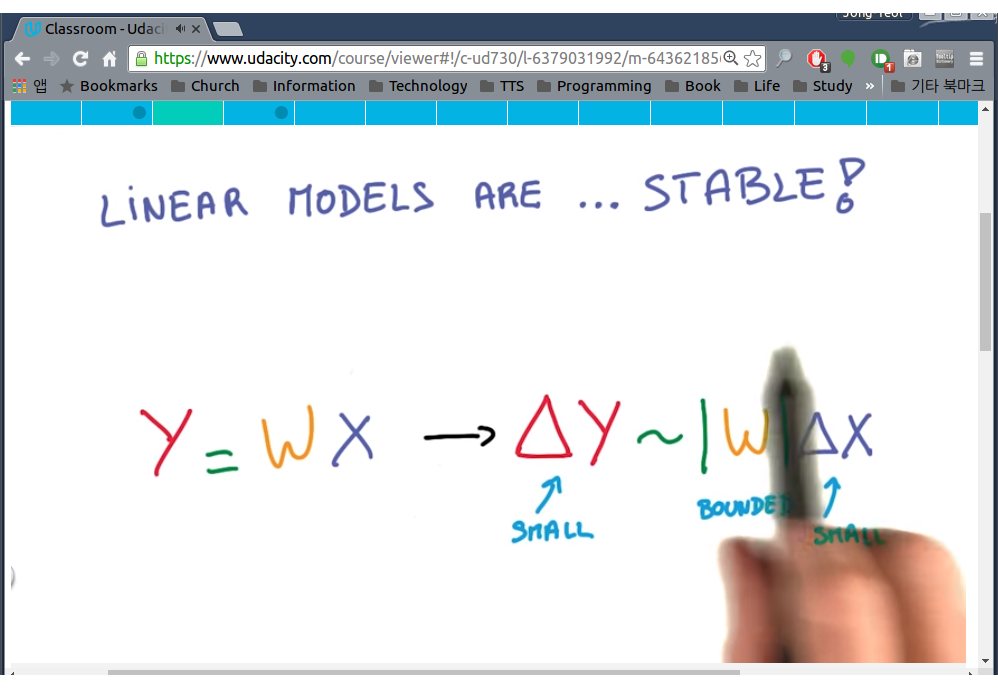 Jong Yeol
Classroom - Udaci
https://www.udacity.com/course/viewer#!/c-ud730/l-6379031992/m-64362185
3
1
앱 Bookmarks Church Information Technology TTS Programming Book Life Study » 기타 북마크
LINEAR MODELS ARE ... STABLE!
Y = W X → ΔY ~ |W| ΔX
SMALL BOUNDED SMALL